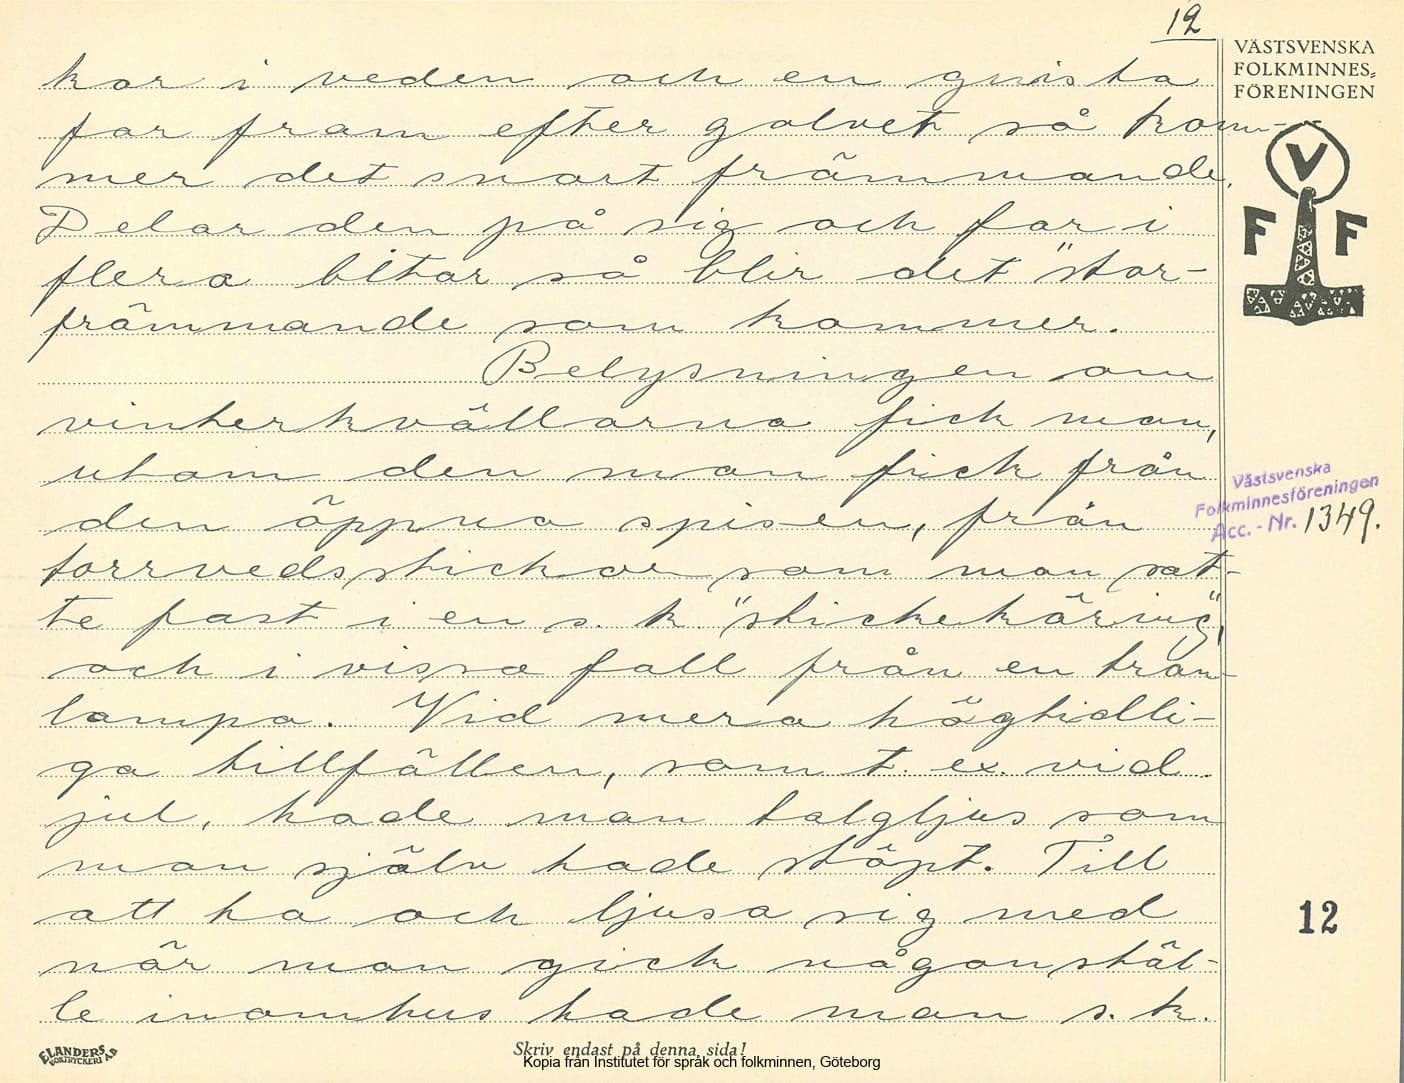 12
VÄSTSVENSKA
FOLKMINNES-
FÖRENINGEN
V
F F
kar i veden och en gnista
far fram efter golvet så kom-
mer det snart främmande.
Delar den på sig och far i
flera bitar så blir det "stor-
främmande som kommer.
Belysningen om
vinterkvällarna fick man,
utom den man fick från
den öppna spisen, från
torrvedsstickor som man sat-
te fast i en s. k. "stickekäring",
och i vissa fall från en tran-
lampa. Vid mera högtidli-
ga tillfällen, som t. ex. vid
jul, hade man talgljus som
man själv hade stöpt. Till
att ha och ljusa sig med
när man gick någonstäl-
le inomhus hade man s. k.
Västsvenska
Folkminnesföreningen
Acc. - Nr. 1349.
12
ELANDERS
BOKTRYCKERI A.B
Skriv endast på denna sida!
Kopia från Institutet för språk och folkminnen, Göteborg